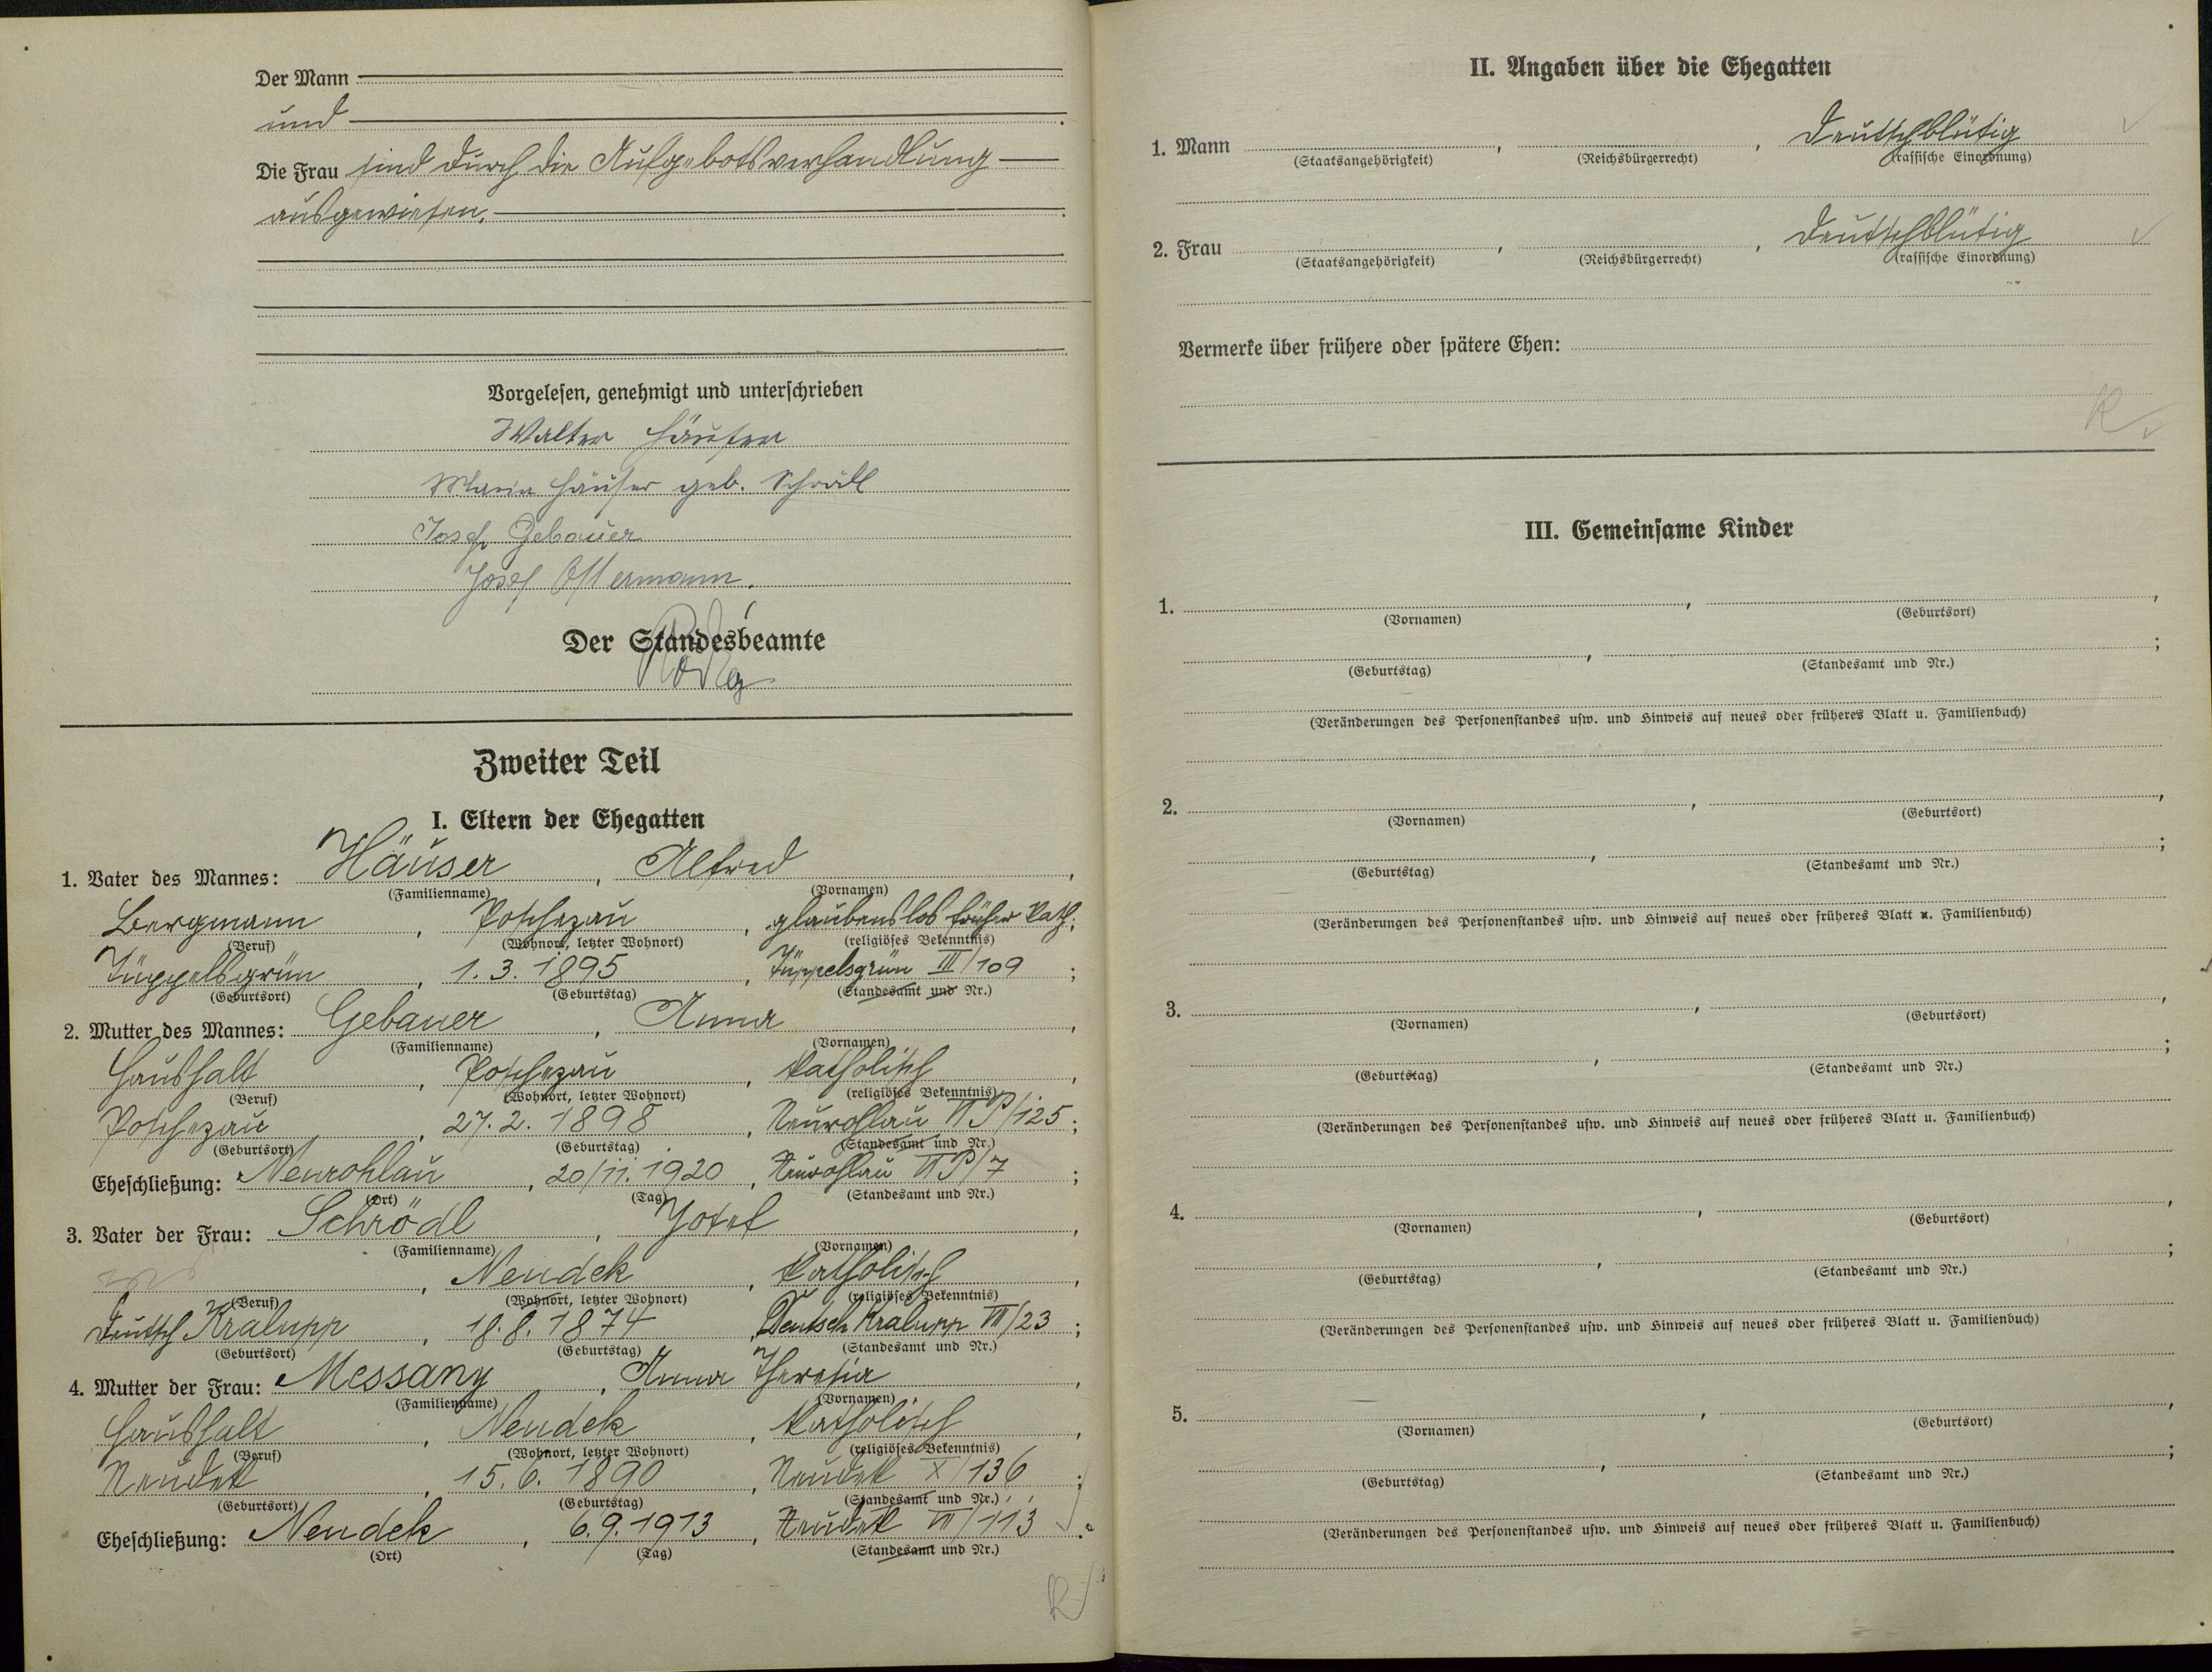 Der Mann
und
Die Frau sind durch die Aufgebotsverhandlung
ausgewiesen.
Vorgelesen, genehmigt und unterschrieben
Walter Häuser
Maria Häuser geb. Schrödl
Josef Gebauer
Josef
Der Standesbeamte
Zweiter Teil
I. Eltern der Ehegatten
1. Vater des Mannes: Häuser, Alfred,
(Familienname) (Vornamen)
Bergmann, Poschezau, glaubenslos früher kath.
(Beruf) (Wohnort, letzter Wohnort) (religiöses Bekenntnis)
Tüppelsgrün, 1.3.1895, Tüppelsgrün III/109;
(Geburtsort) (Geburtstag) (Standesamt und Nr.)
2. Mutter des Mannes: Gebauer, Anna,
(Familienname) (Vornamen)
Haushalt, Poschezau, katholisch,
(Beruf) (Wohnort, letzter Wohnort) (religiöses Bekenntnis)
Poschezau, 27.2.1898, Neurohlau VI P/125;
(Geburtsort) (Geburtstag) (Standesamt und Nr.)
Eheschließung: Neurohlau, 20/11.1920, Neurohlau VI P/7;
(Ort) (Tag) (Standesamt und Nr.)
3. Vater der Frau: Schrödl, Josef,
(Familienname) (Vornamen)
, Neudek, katholisch,
(Beruf) (Wohnort, letzter Wohnort) (religiöses Bekenntnis)
Deutsch Kralupp, 18.8.1874, Deutsch Kralupp VII/23;
(Geburtsort) (Geburtstag) (Standesamt und Nr.)
4. Mutter der Frau: Messany, Anna Theresia,
(Familienname) (Vornamen)
Haushalt, Neudek, katholisch,
(Beruf) (Wohnort, letzter Wohnort) (religiöses Bekenntnis)
Neudek, 15.6.1890, Neudek X/136;
(Geburtsort) (Geburtstag) (Standesamt und Nr.)
Eheschließung: Neudek, 6.9.1913, Neudek VII/113.
(Ort) (Tag) (Standesamt und Nr.)
R
II. Angaben über die Ehegatten
1. Mann , , Deutschblütig
(Staatsangehörigkeit) (Reichsbürgerrecht) (rassische Einordnung)
2. Frau , , Deutschblütig
(Staatsangehörigkeit) (Reichsbürgerrecht) (rassische Einordnung)
Vermerke über frühere oder spätere Ehen:
R.
III. Gemeinsame Kinder
1. , ,
(Vornamen) (Geburtsort)
, ;
(Geburtstag) (Standesamt und Nr.)
(Veränderungen des Personenstandes usw. und Hinweis auf neues oder früheres Blatt u. Familienbuch)
2. , ,
(Vornamen) (Geburtsort)
, ;
(Geburtstag) (Standesamt und Nr.)
(Veränderungen des Personenstandes usw. und Hinweis auf neues oder früheres Blatt u. Familienbuch)
3. , ,
(Vornamen) (Geburtsort)
, ;
(Geburtstag) (Standesamt und Nr.)
(Veränderungen des Personenstandes usw. und Hinweis auf neues oder früheres Blatt u. Familienbuch)
4. , ,
(Vornamen) (Geburtsort)
, ;
(Geburtstag) (Standesamt und Nr.)
(Veränderungen des Personenstandes usw. und Hinweis auf neues oder früheres Blatt u. Familienbuch)
5. , ,
(Vornamen) (Geburtsort)
, ;
(Geburtstag) (Standesamt und Nr.)
(Veränderungen des Personenstandes usw. und Hinweis auf neues oder früheres Blatt u. Familienbuch)